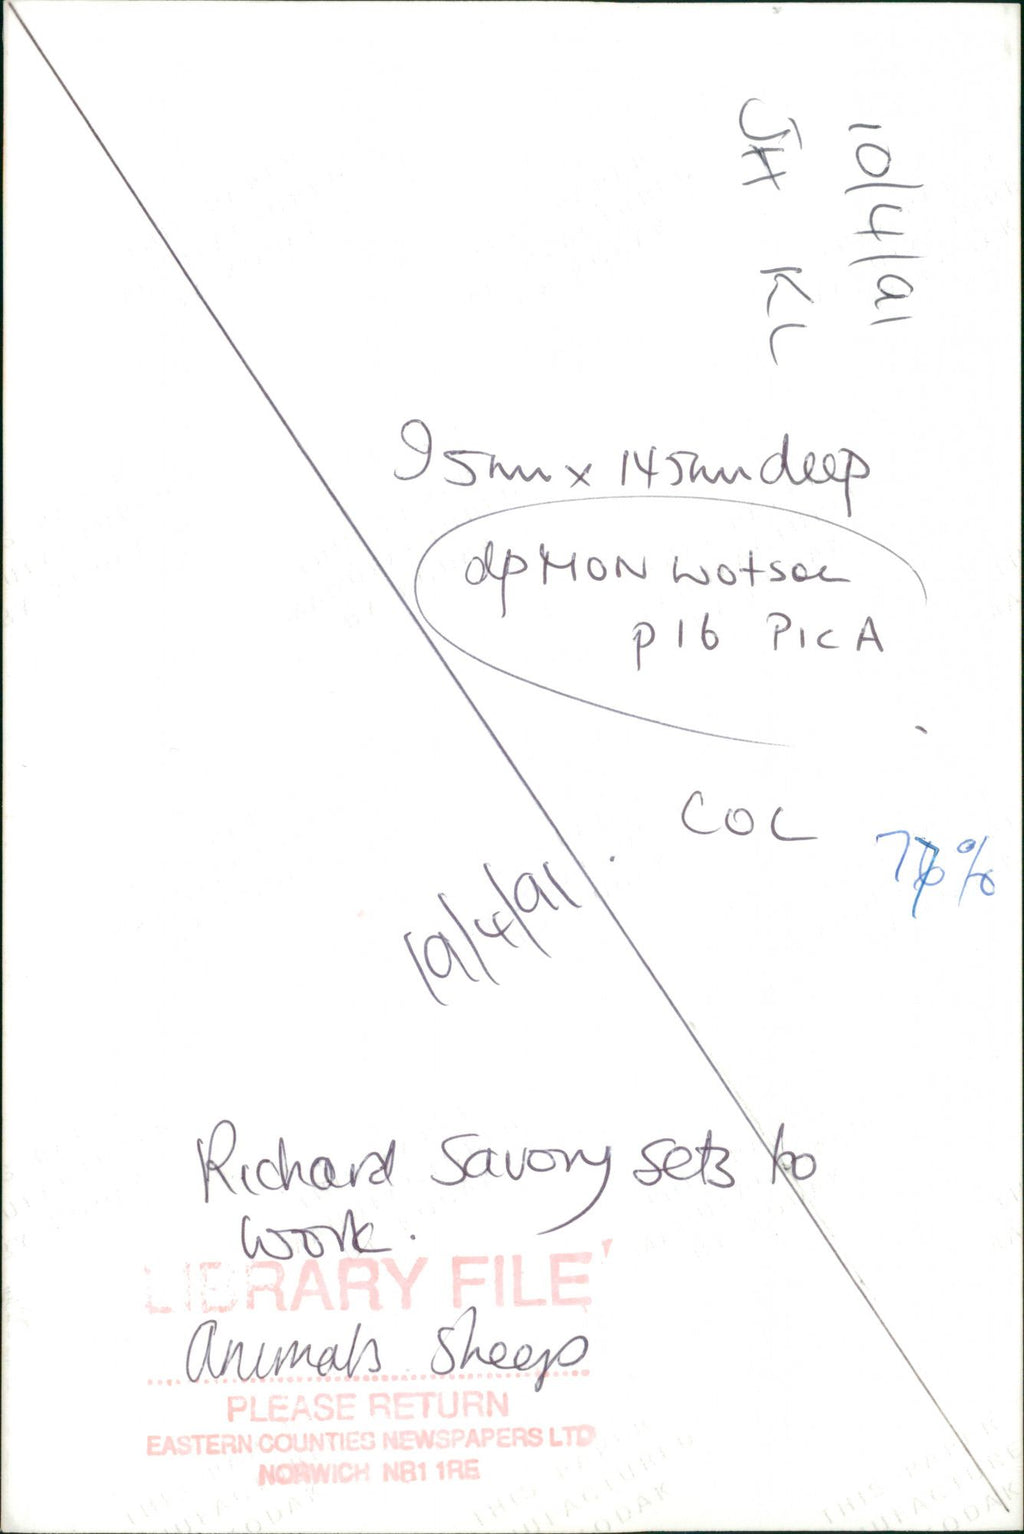 10/4/91
JH KL
95mm x 145mm deep
dp MON
p16 PIC A
COL
%
19/4/91
Richard Savory sets to
work.
LIBRARY FILE
Animals Sheep
PLEASE RETURN
EASTERN COUNTIES NEWSPAPERS LTD
NORWICH NR1 1RE